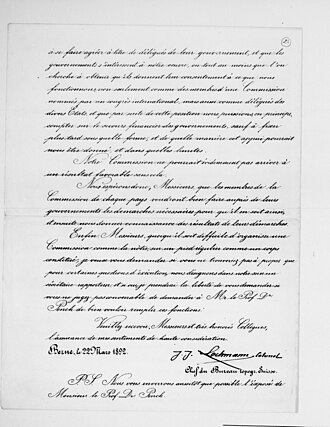 à se faire agréer à titre de délégués de leur gouvernement, et que les
gouvernements s'intéressent à notre œuvre, en tout au moins que l'on
cherche à obtenir qu'ils donnent leur consentement à ce que nous
fonctionnions non seulement comme des membres d'une Commission
nommée par un congrès international, mais aussi comme délégués des
divers Etats, et que par suite de cette position nous puissions, en principe,
compter sur le secours financier des gouvernements, sauf à fixer
plus tard sous quelle forme, et de quelle manière cet appui pourrait
nous être donné, et dans quelles limites.
Notre Commission ne pourrait autrement pas arriver à
un résultat favorable sans cela.
Nous espérons donc, Messieurs que les membres de la
Commission de chaque pays voudront bien faire auprès de leurs
gouvernements les démarches nécessaires pour qu'il en soit ainsi,
et ensuite nous donner connaissance du résultat de leurs démarches.
Enfin Messieurs, quoiqu'il soit difficile d'organiser une
Commission comme la nôtre, sur un pied régulier comme un corps
constitué, je vous demander si vous ne trouverez pas à propos que
pour certaines questions d'exécution, nous désignions dans notre sein un
certain rapporteur, et si oui, je prendrai la liberté de vous demander si
vous ne jugez pas convenable de demander à Mr. le Prof. Dr.
Penck de bien vouloir remplir ces fonctions.
Veuillez recevoir, Messieurs et très honorés Collègues,
l'assurance de mes sentiments de haute considération.
Berne, le 22 Mars 1892.
J. J. Lochmann, Colonel
Chef du Bureau topogr. Suisse.
P.S. Nous vous enverrons aussitôt que possible l'exposé de
Monsieur le Prof. Dr. Penck.